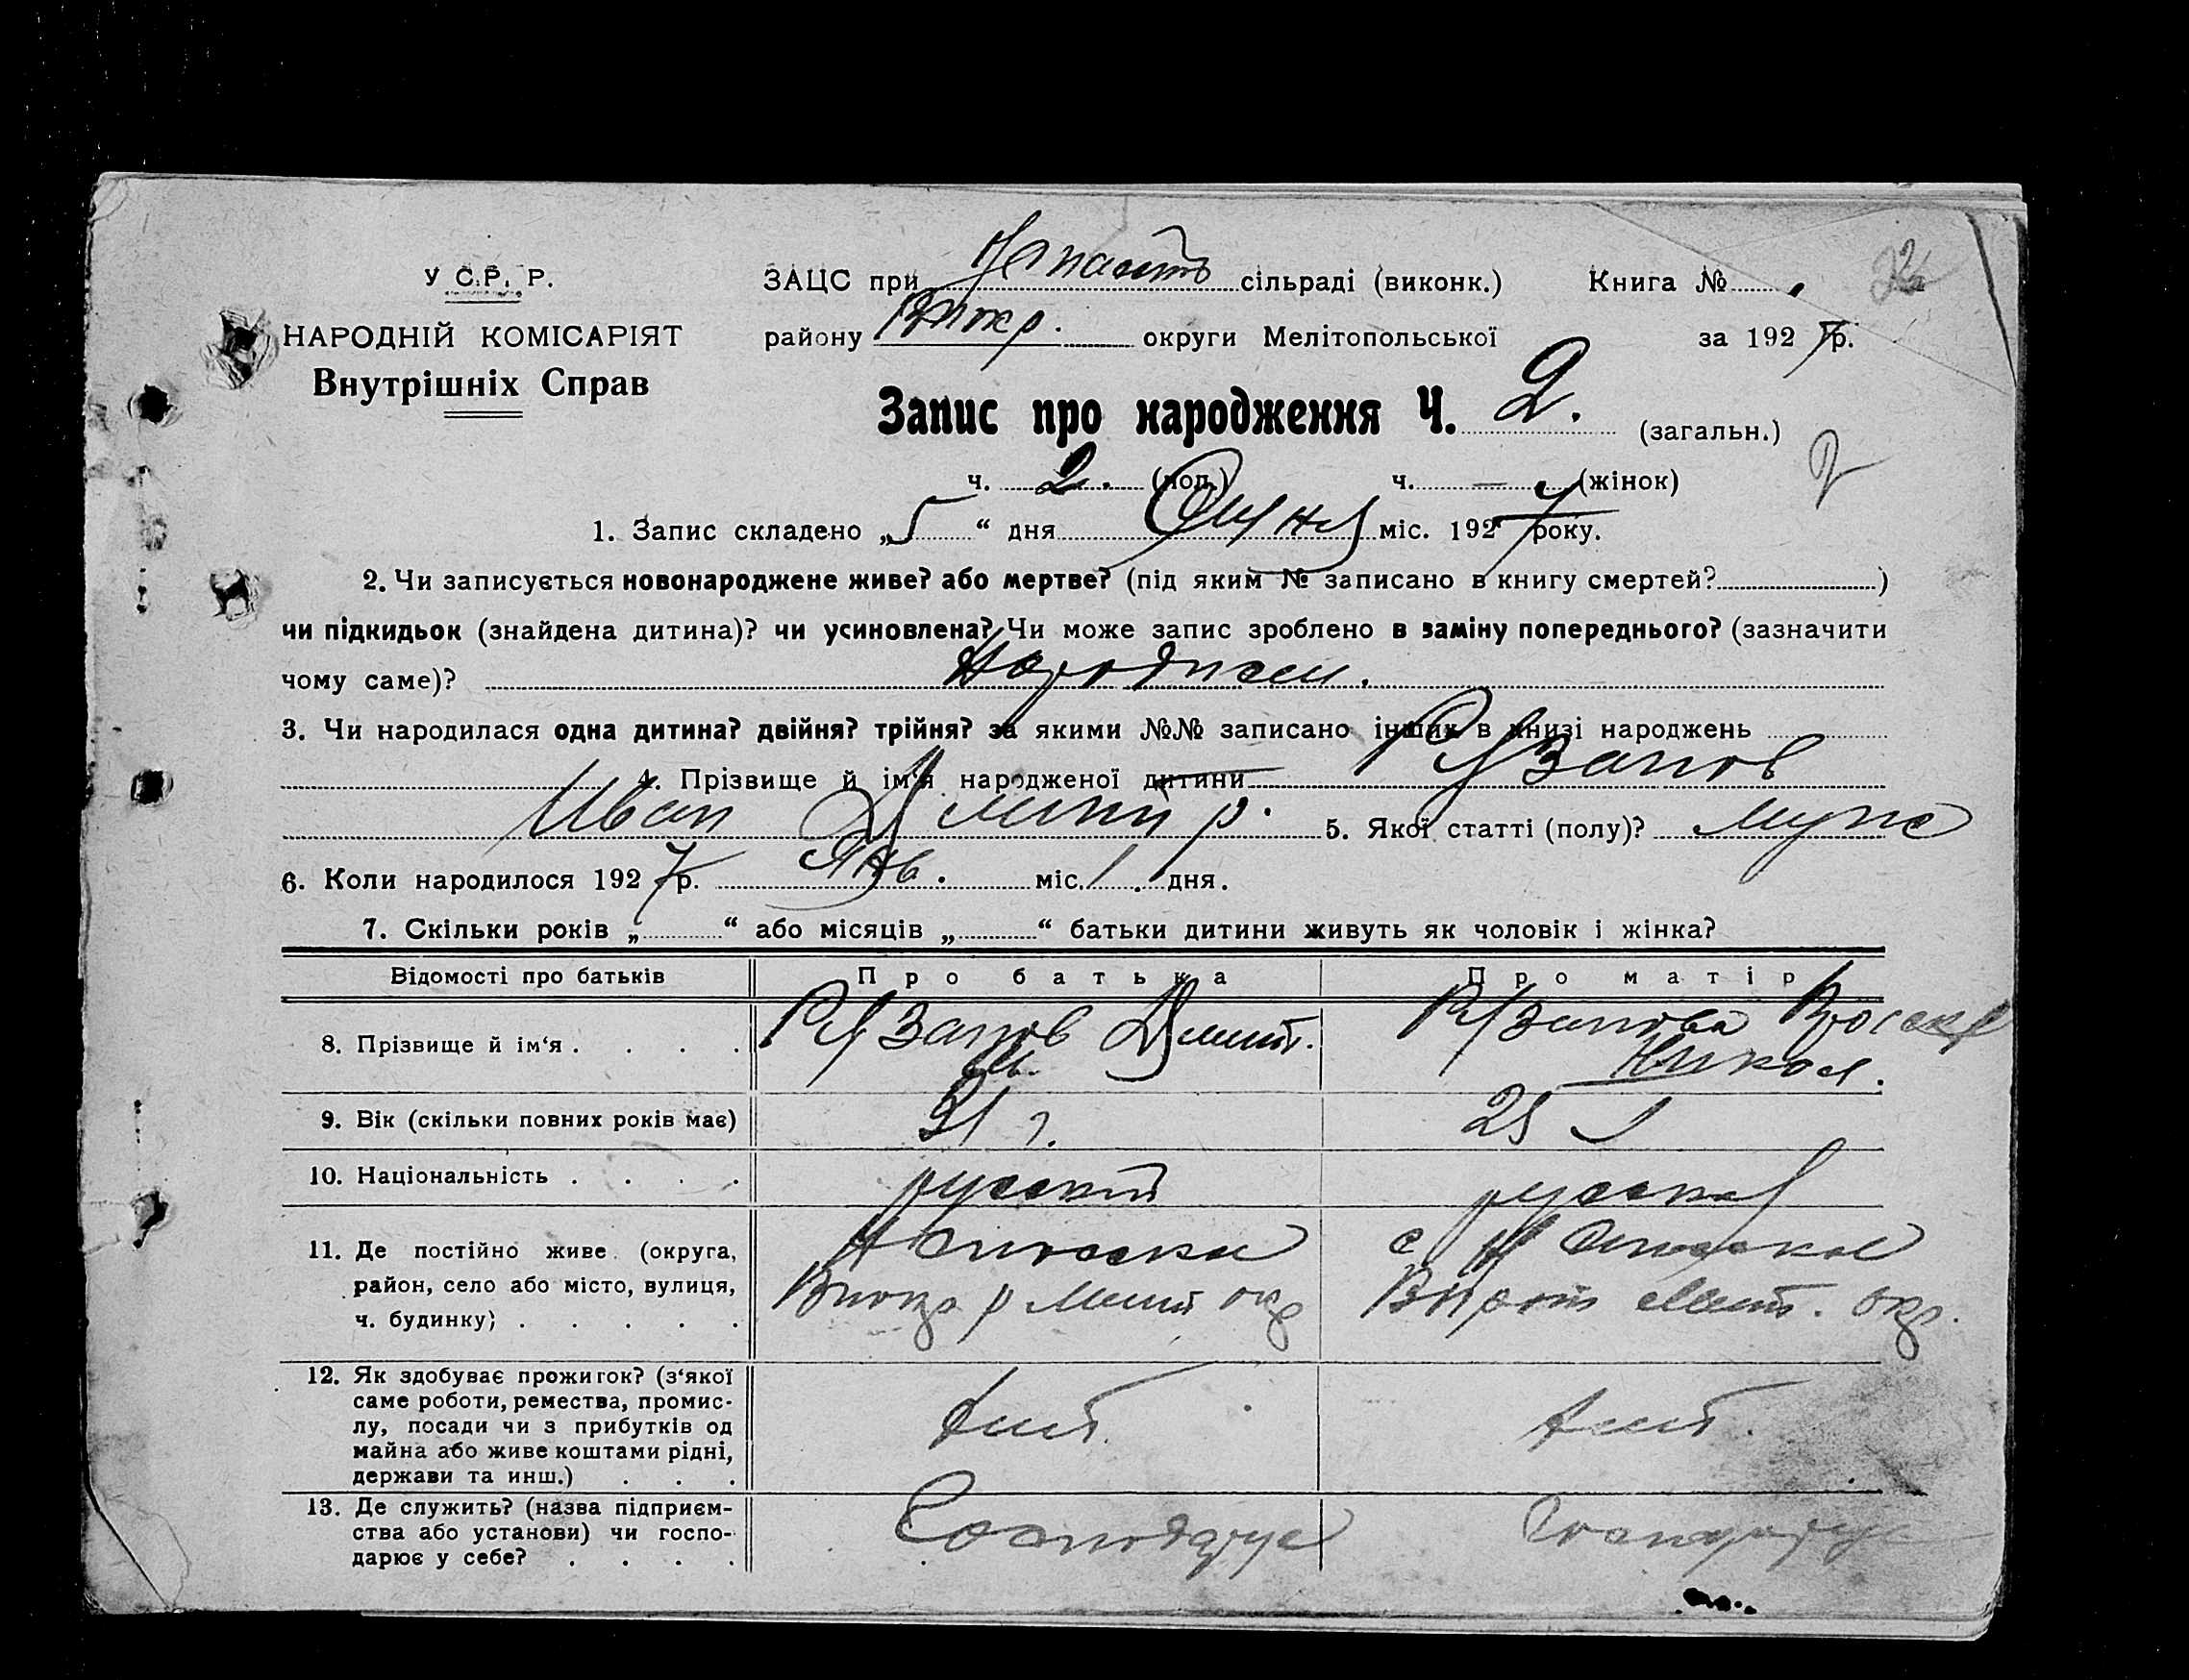 У С.Р. Р.
НАРОДНІЙ КОМІСАРІЯТ
Внутрішніх Справ
ЗАЦС при сільраді (виконк.) Книга №
району округи Мелітопольської за 1927 р.
Запис про народження Ч. 2. (загальн.)
ч. 2. (чол.) ч. — (жінок)
2
1. Запис складено „5“ дня міс. 1927 року.
2. Чи записується новонароджене живе? або мертве? (під яким № записано в книгу смертей? )
чи підкидьок (знайдена дитина)? чи усиновлена? Чи може запис зроблено в заміну попереднього? (зазначити
чому саме)?
3. Чи народилася одна дитина? двійня? трійня? за якими №№ записано інших в книзі народжень
4. Прізвище й ім'я народженої дитини Рязанов
Иван 5. Якої статті (полу)? муж
6. Коли народилося 1927 р. Янв. міс. 1. дня.
7. Скільки років „ “ або місяців „ “ батьки дитини живуть як чоловік і жінка?
Відомості про батьків Про батька Про матір
8. Прізвище й ім'я . . . . Рязанов Дмит. Рязанова
Никол.
9. Вік (скільки повних років має) 31 г. 25
10. Національність . . . . русский русская
11. Де постійно живе (округа,
район, село або місто, вулиця,
ч. будинку) . . . . . Мелит окр Мелит. окр.
12. Як здобуває прожиток? (з'якої
саме роботи, ремества, промис-
лу, посади чи з прибутків од
майна або живе коштами рідні,
держави та инш.) . . .
13. Де служить? (назва підприєм-
ства або установи) чи госпо-
дарює у себе? . . . .